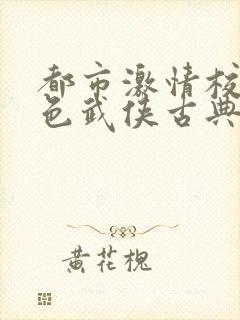 都市激情校
色武侠古典
黄花槐